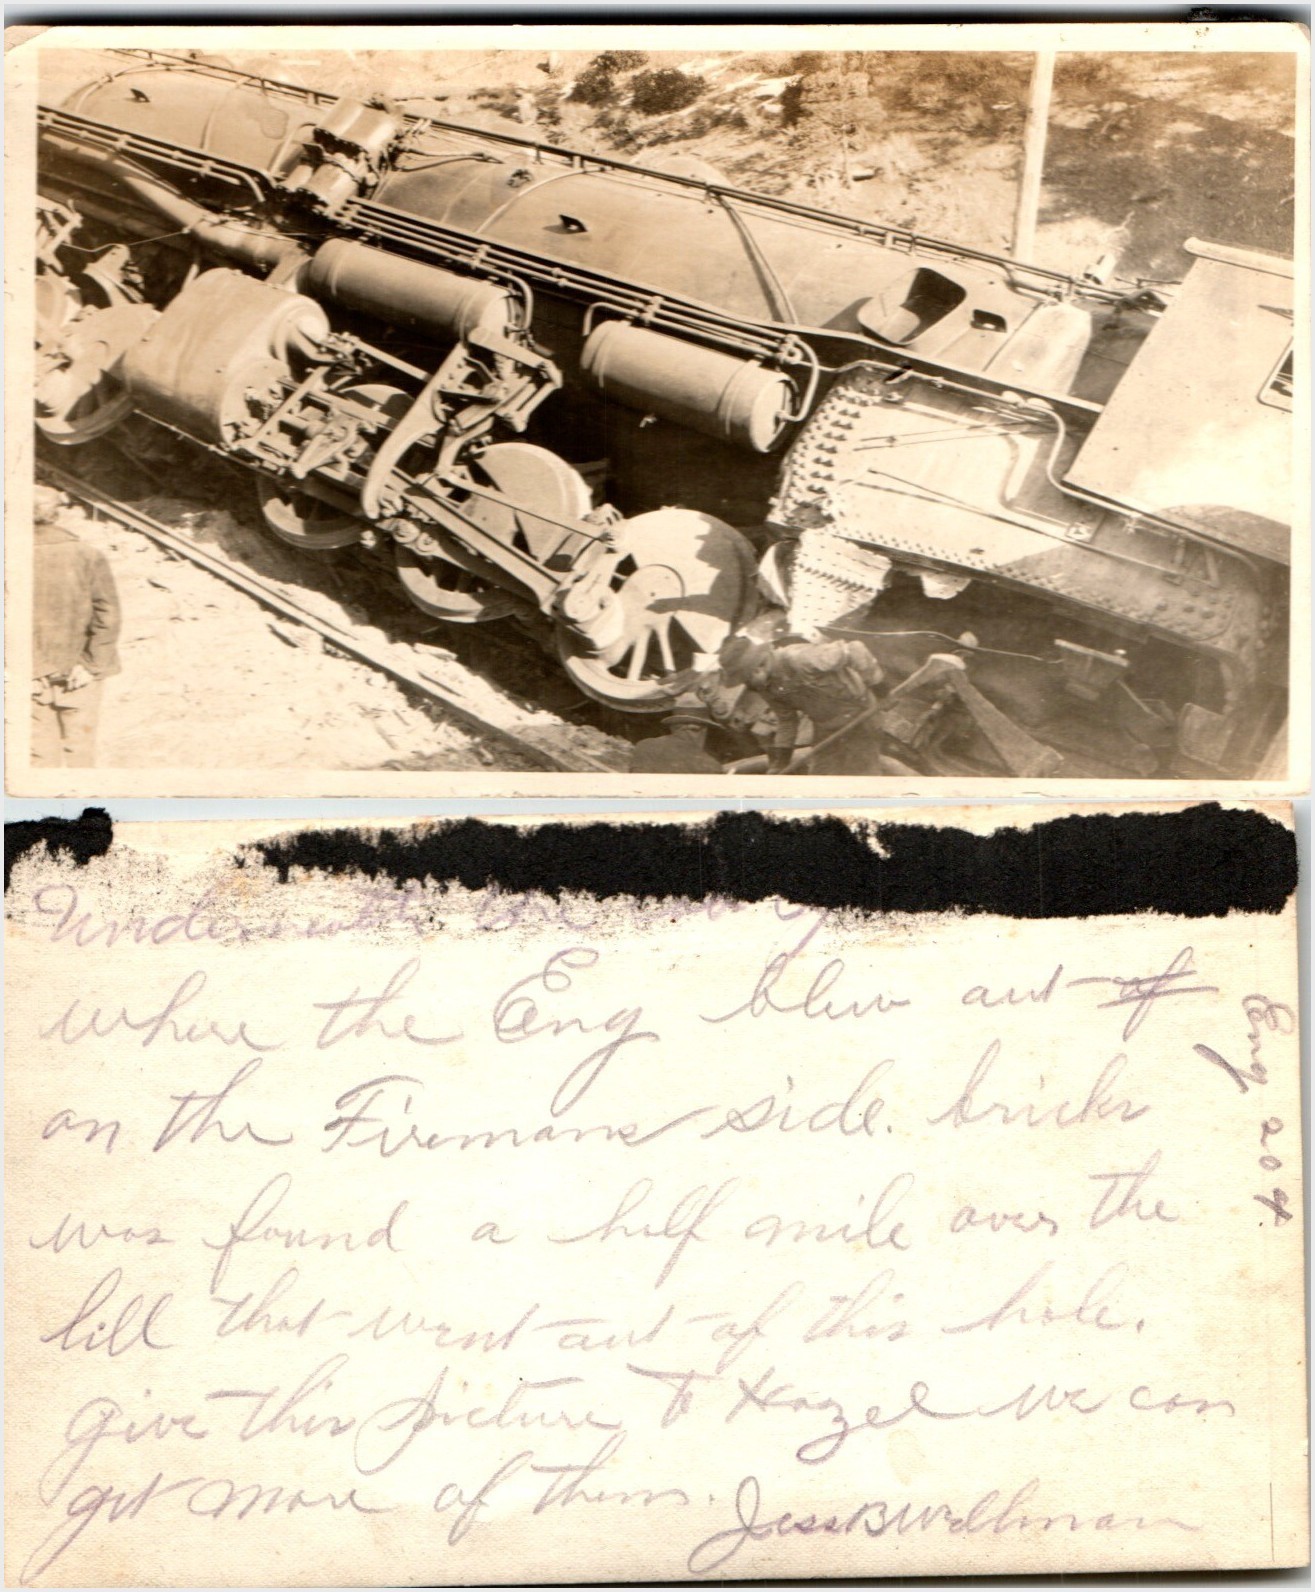 Underneath the
where the Eng blew out of
on the Firemans side. bricks
was found a half mile over the
hill that went out of this hole.
give this picture to Hazel we can
get more of them.
Jess B Wellman
Eng 204